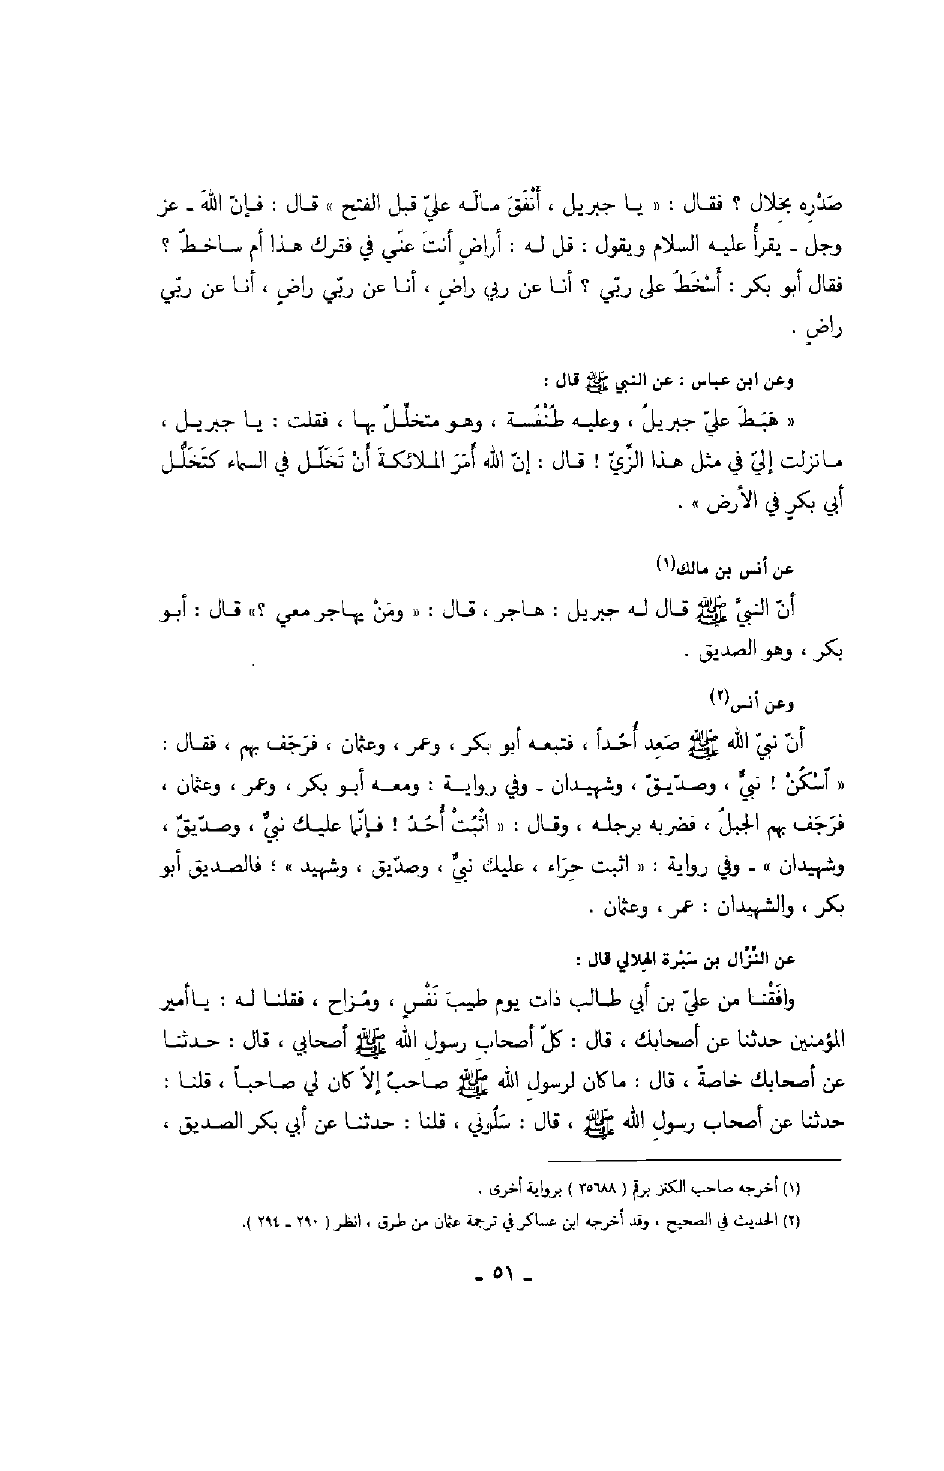 صَدْرِه بخِلال ؟ فقـال : « يـا جبريل ، أَنْفَقَ مـالَـه عليّ قبل الفتح » قـال : فـإنّ اللهَ ـ عز
وجل ـ يقرأُ عليـه السلام ويقول : قل لـه : أراضٍ أنتَ عنّي في فقرك هـذا أم سـاخـطٌ ؟
فقال أبو بكر : أَسْخَطُ على ربّي ؟ أنـا عن ربي راضٍ ، أنـا عن ربّي راضٍ ، أنـا عن ربّي
راضٍ .
وعن ابن عباس : عن النبي ﷺ قال :
« هَبَـطَ عليّ جبريلُ ، وعليـه طُنْفُسـة ، وهـو متخلّـلٌ بهـا ، فقلت : يـا جبريـل ،
مـا نزلت إليّ في مثل هـذا الزِّيّ ! قـال : إنّ الله أَمَرَ المـلائكـةَ أنْ تخَلّـل في السماء كتَخَلُّـل
أبي بكرٍ في الأرض » .
عن أنس بن مالك(١)
أنّ النبيَّ ﷺ قـال لـه جبريل : هـاجر ، قـال : « ومَنْ يهـاجر معي ؟» قـال : أبـو
بكر ، وهو الصديق .
وعن أنس(٢)
أنّ نبيّ الله ﷺ صَعِد أُحُداً ، فتبعـه أبو بكر ، وعمر ، وعثمان ، فرَجَف بهم ، فقـال :
« اَسْكُنْ ! نبيٌّ ، وصدّيـقٌ ، وشهيـدان ـ وفي روايـة : ومعـه أبـو بكر ، وعمر ، وعثمان ،
فرَجَف بهم الجبلُ ، فضربه برجلـه ، وقـال : « اثْبُتْ أُحُـدُ ! فـإنّما عليـك نبيٌّ ، وصدّيقٌ ،
وشهيدان » ـ وفي رواية : « اثبت حِرَاء ، عليك نبيٌّ ، وصدّيق ، وشهيد » ؛ فالصـديق أبو
بكر ، والشهيدان : عمر ، وعثمان .
عن النَّزَّال بن سَبْرة الهلالي قال :
وافَقْنـا من عليّ بن أبي طـالب ذات يوم طيبَ نَفْسٍ ، ومُـزاح ، فقلنـا لـه : يـا أمير
المؤمنين حدثنا عن أصحابك ، قال : كلّ أصحابِ رسولِ الله ﷺ أصحابي ، قال : حـدثنـا
عن أصحابك خاصةً ، قال : ما كان لرسولِ الله ﷺ صـاحبٌ إلاّ كان لي صـاحبـاً ، قلنـا :
حدثنا عن أصحاب رسولِ الله ﷺ ، قال : سَلُوني ، قلنا : حدثنـا عن أبي بكر الصـديق ،
(١) أخرجه صاحب الكنز برقم ( ٣٥٦٨٨ ) برواية أخرى .
(٢) الحديث في الصحيح ، وقد أخرجه ابن عساكر في ترجمة عثمان من طرق ، انظر ( ٢٩٠ ـ ٢٩٤ ).
ـ ٥١ ـ